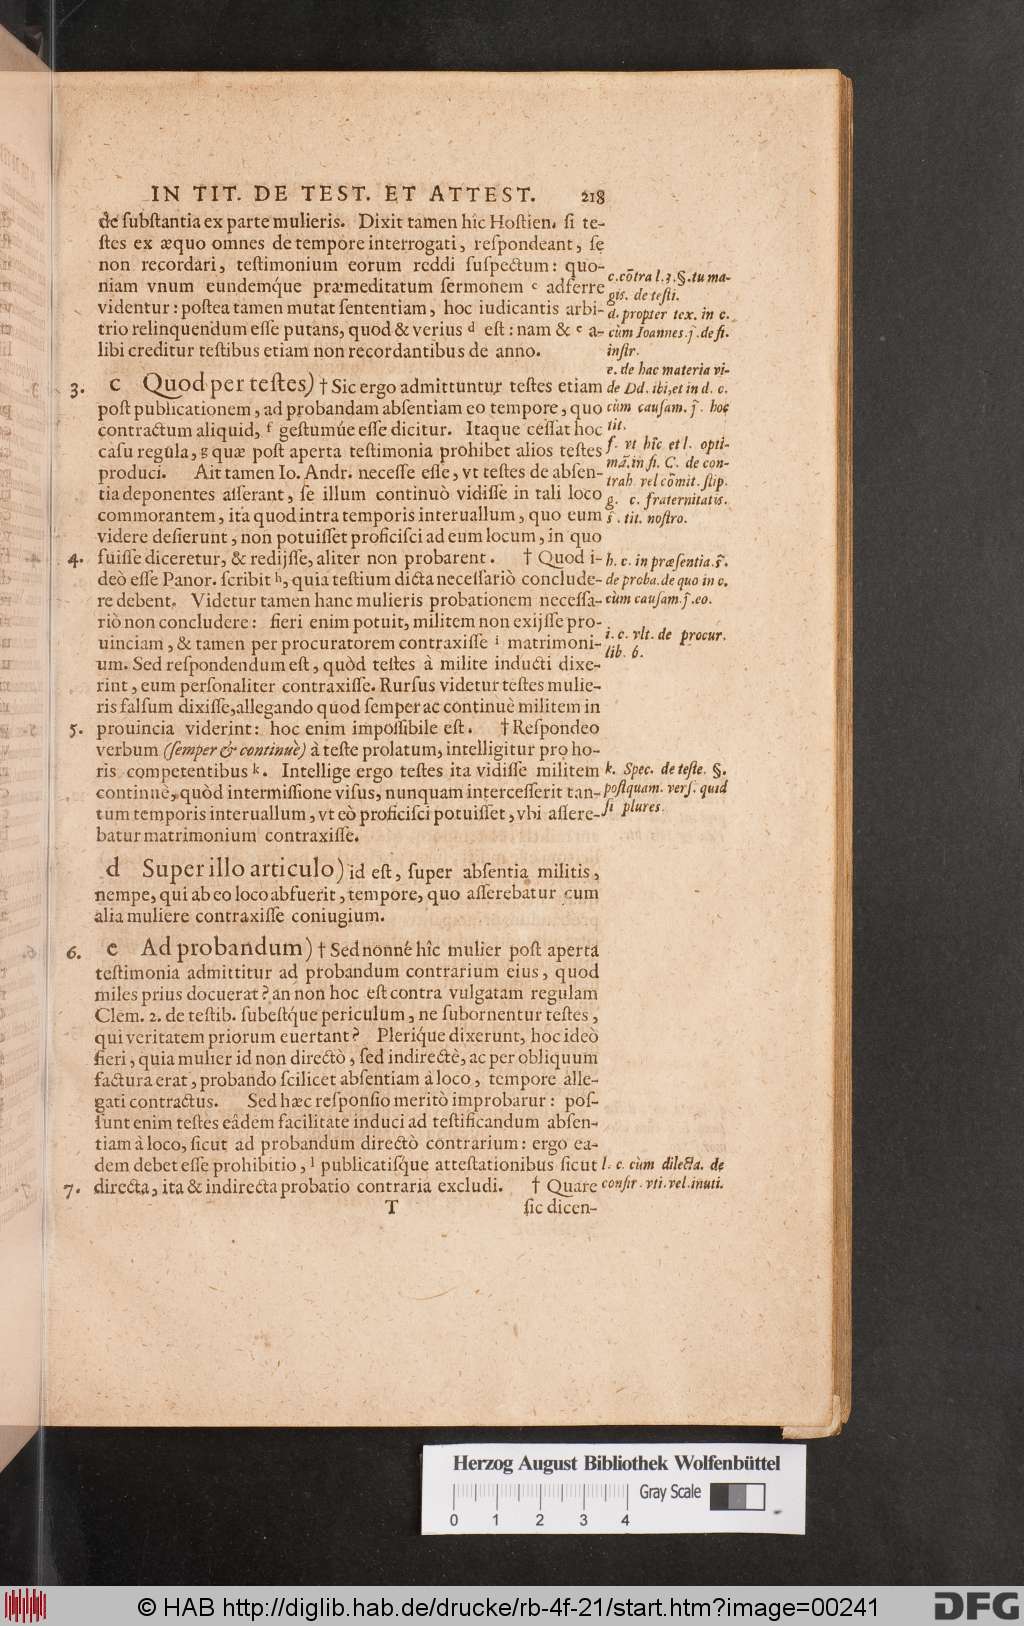 IN TIT. DE TEST. ET ATTEST. 218
de ſubſtantia ex parte mulieris. Dixit tamen hîc Hoſtien. ſi te-
ſtes ex æquo omnes de tempore interrogati, reſpondeant, ſe
non recordari, teſtimonium eorum reddi ſuſpectum: quo-
niam vnum eundemq́ue præmeditatum ſermonem c adferre
videntur: poſtea tamen mutat ſententiam, hoc iudicantis arbi-
trio relinquendum eſſe putans, quod & verius d eſt: nam & e a-
libi creditur teſtibus etiam non recordantibus de anno.
c.cōtra l.3.§.tu ma-
gis. de teſti.
d. propter tex. in c.
cùm Ioannes.j̃.de fi.
inſtr.
e. de hac materia vi-
de Dd. ibi, et in d. c.
cùm cauſam. j̃. hoc
tit.
3. c Quod per teſtes) † Sic ergo admittuntur teſtes etiam
poſt publicationem, ad probandam abſentiam eo tempore, quo
contractum aliquid, f geſtumúe eſſe dicitur. Itaque ceſſat hoc
caſu regula, g quæ poſt aperta teſtimonia prohibet alios teſtes
produci. Ait tamen Io. Andr. neceſſe eſſe, vt teſtes de abſen-
tia deponentes aſſerant, ſe illum continuò vidiſſe in tali loco
commorantem, ita quod intra temporis interuallum, quo eum
videre deſierunt, non potuiſſet proficiſci ad eum locum, in quo
4. fuiſſe diceretur, & redijſſe, aliter non probarent. † Quod i-
deò eſſe Panor. ſcribit h, quia teſtium dicta neceſſariò conclude-
re debent. Videtur tamen hanc mulieris probationem neceſſa-
riò non concludere: fieri enim potuit, militem non exijſſe pro-
uinciam, & tamen per procuratorem contraxiſſe i matrimoni-
um. Sed reſpondendum eſt, quòd teſtes à milite inducti dixe-
rint, eum perſonaliter contraxiſſe. Rurſus videtur teſtes mulie-
ris falſum dixiſſe, allegando quod ſemper ac continuè militem in
5. prouincia viderint: hoc enim impoſſibile eſt. † Reſpondeo
verbum (ſemper & continuè) à teſte prolatum, intelligitur pro ho-
ris competentibus k. Intellige ergo teſtes ita vidiſſe militem
continuè, quòd intermiſſione viſus, nunquam interceſſerit tan-
tum temporis interuallum, vt eò proficiſci potuiſſet, vbi aſſere-
batur matrimonium contraxiſſe.
f. vt hîc et l. opti-
mã. in fi. C. de con-
trah. vel cōmit. ſtip.
g. c. fraternitatis.
s̃. tit. noſtro.
h. c. in præſentia.s̃.
de proba. de quo in c.
cùm cauſam.j̃.eo.
i. c. vlt. de procur.
lib. 6.
k. Spec. de teſte. §.
poſtquam. verſ. quid
ſi plures.
d Super illo articulo) id eſt, ſuper abſentia militis,
nempe, qui ab eo loco abfuerit, tempore, quo aſſerebatur cum
alia muliere contraxiſſe coniugium.
6. e Ad probandum) † Sed nonné hîc mulier poſt aperta
teſtimonia admittitur ad probandum contrarium eius, quod
miles prius docuerat? an non hoc eſt contra vulgatam regulam
Clem. 2. de teſtib. ſubeſtq́ue periculum, ne ſubornentur teſtes,
qui veritatem priorum euertant? Pleriq́ue dixerunt, hoc ideò
fieri, quia mulier id non directò, ſed indirectè, ac per obliquum
factura erat, probando ſcilicet abſentiam à loco, tempore alle-
gati contractus. Sed hæc reſponſio meritò improbarur: poſ-
ſunt enim teſtes eâdem facilitate induci ad teſtificandum abſen-
tiam à loco, ſicut ad probandum directò contrarium: ergo ea-
dem debet eſſe prohibitio, l publicatiſq́ue atteſtationibus ſicut
7. directa, ita & indirecta probatio contraria excludi. † Quare
l. c. cùm dilecta. de
confir. vti. vel. inuti.
T ſic dicen-
Herzog August Bibliothek Wolfenbüttel
Gray Scale
0 1 2 3 4
© HAB http://diglib.hab.de/drucke/rb-4f-21/start.htm?image=00241
DFG